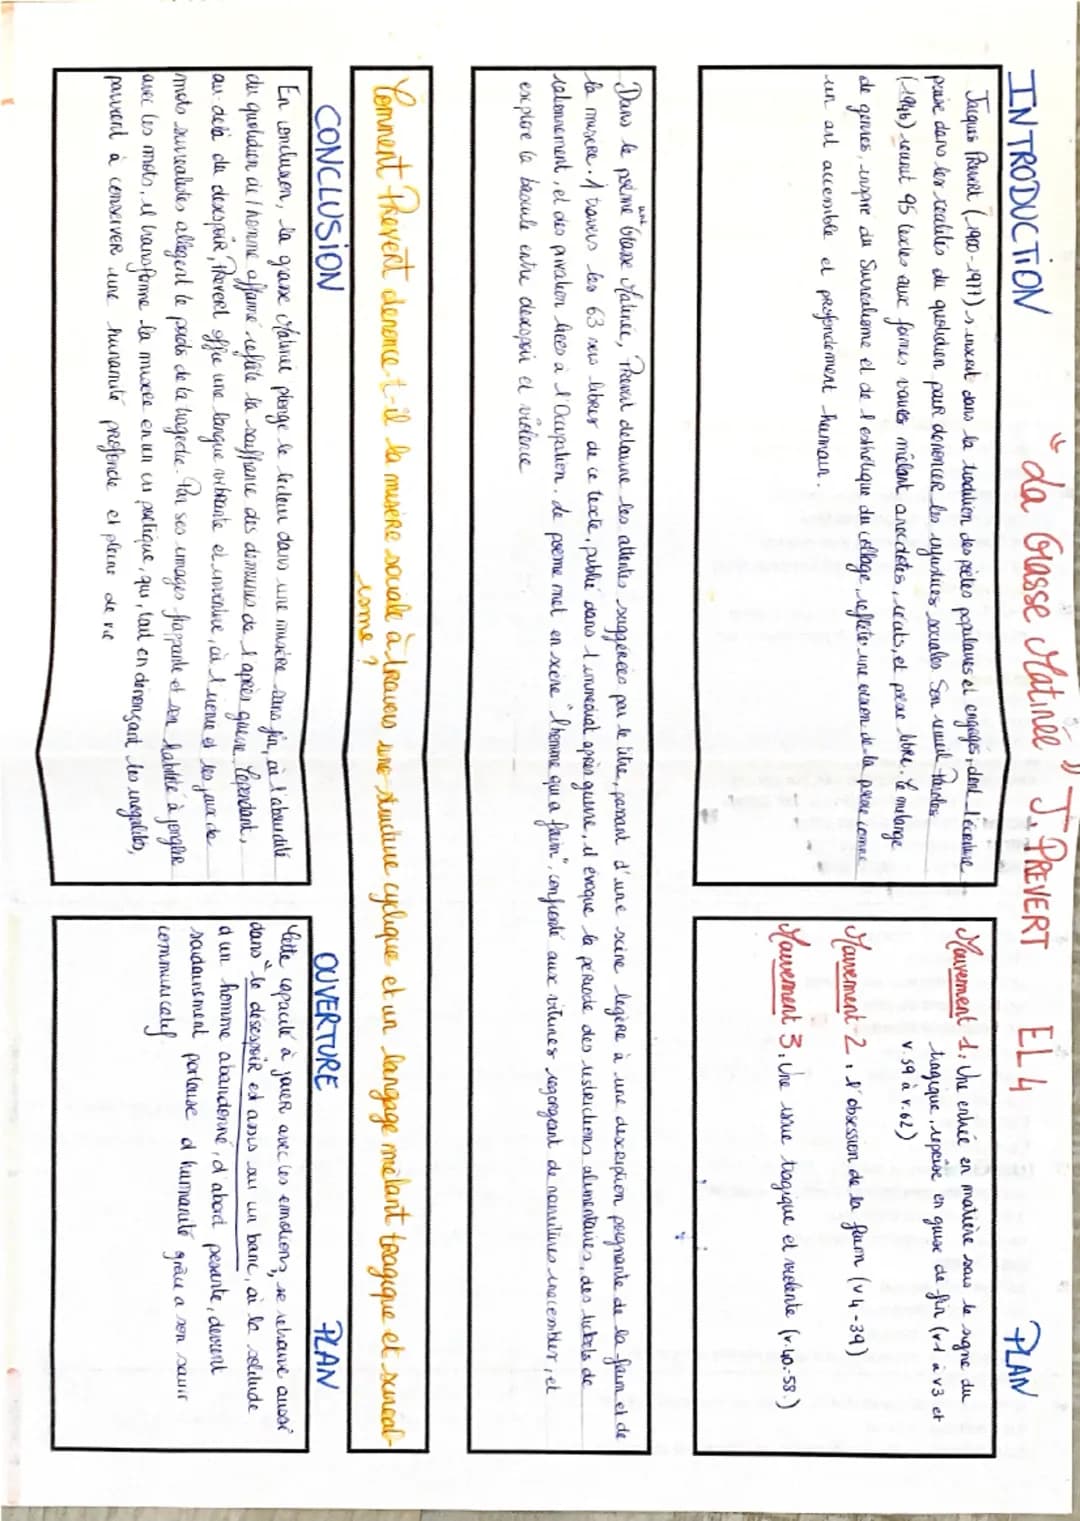 "La Grasse Matinée" J. PREVERT EL 4
INTRODUCTION
Jacques Prévert (1900-1977) s'inscrit dans la tradition des poètes populaires et engagés, dont l'écriture
puise dans les réalités du quotidien pour dénoncer les injustices sociales. Son recueil Paroles
(1946) réunit 95 textes aux formes variées mêlant anecdotes, récits, et prose libre. Ce mélange
de genres, inspiré du Surréalisme et de l'esthétique du collage, reflète une vision de la poésie comme
un art accessible et profondément humain.
PLAN
Mouvement 1: Une entrée en matière sous le signe du
tragique, reprise en guise de fin (v.1 à v3 et
v.59 à v.62)
Mouvement 2, l'obsession de la faim (v4-39)
Mouvement 3, Une issue tragique et violente (v.40-58.)
Dans le poème "La Grasse Matinée, Prévert détourne les attentes suggérées par le titre, passant d'une scène légère à une description poignante de la faim et de
la misère. A travers les 63 vers libres de ce texte, publié dans l'immédiat après guerre, il évoque la période des restrictions alimentaires, des tickets de
rationnement, et des privation liées à l'Occupation. Le poème met en scène "l'homme qui a faim" confronté aux vitrines regorgeant de nourritures inaccessibles et
explore la bascule entre desespoir et violence
Comment Prévert dénonce-t-il la misère sociale à travers une structure cyclique et un langage mêlant tragique et surréal-
isme ?
CONCLUSION
En conclusion, la grasse Matinée plonge le lecteur dans une misère sans fin, où l'absurdité
du quotidien de l'homme affamé reflète la souffrance des diminués de l'après guerre. Cependant,
au-delà du desespoir, Prévert offre une langue vibrante et inventive, où l'ironie et les jeux de
mots surréalistes allègent le poids de la tragédie. Par ses images frappante et son habilité à jongler
avec les mots, il transforme la misère en un cri poétique, qui, tout en dénonçant les inégalités,
parvient à conserver une humanité profonde et pleine de vie
OUVERTURE
PLAN
Cette capacité à jouer avec les émotions, se retrouve aussi
dans "le désespoir est assis sur un banc, où la solitude
d'un homme abandonné, d'abord pesante, devient
soudainement porteuse d'humanité grâce a son sourir
communicatif.